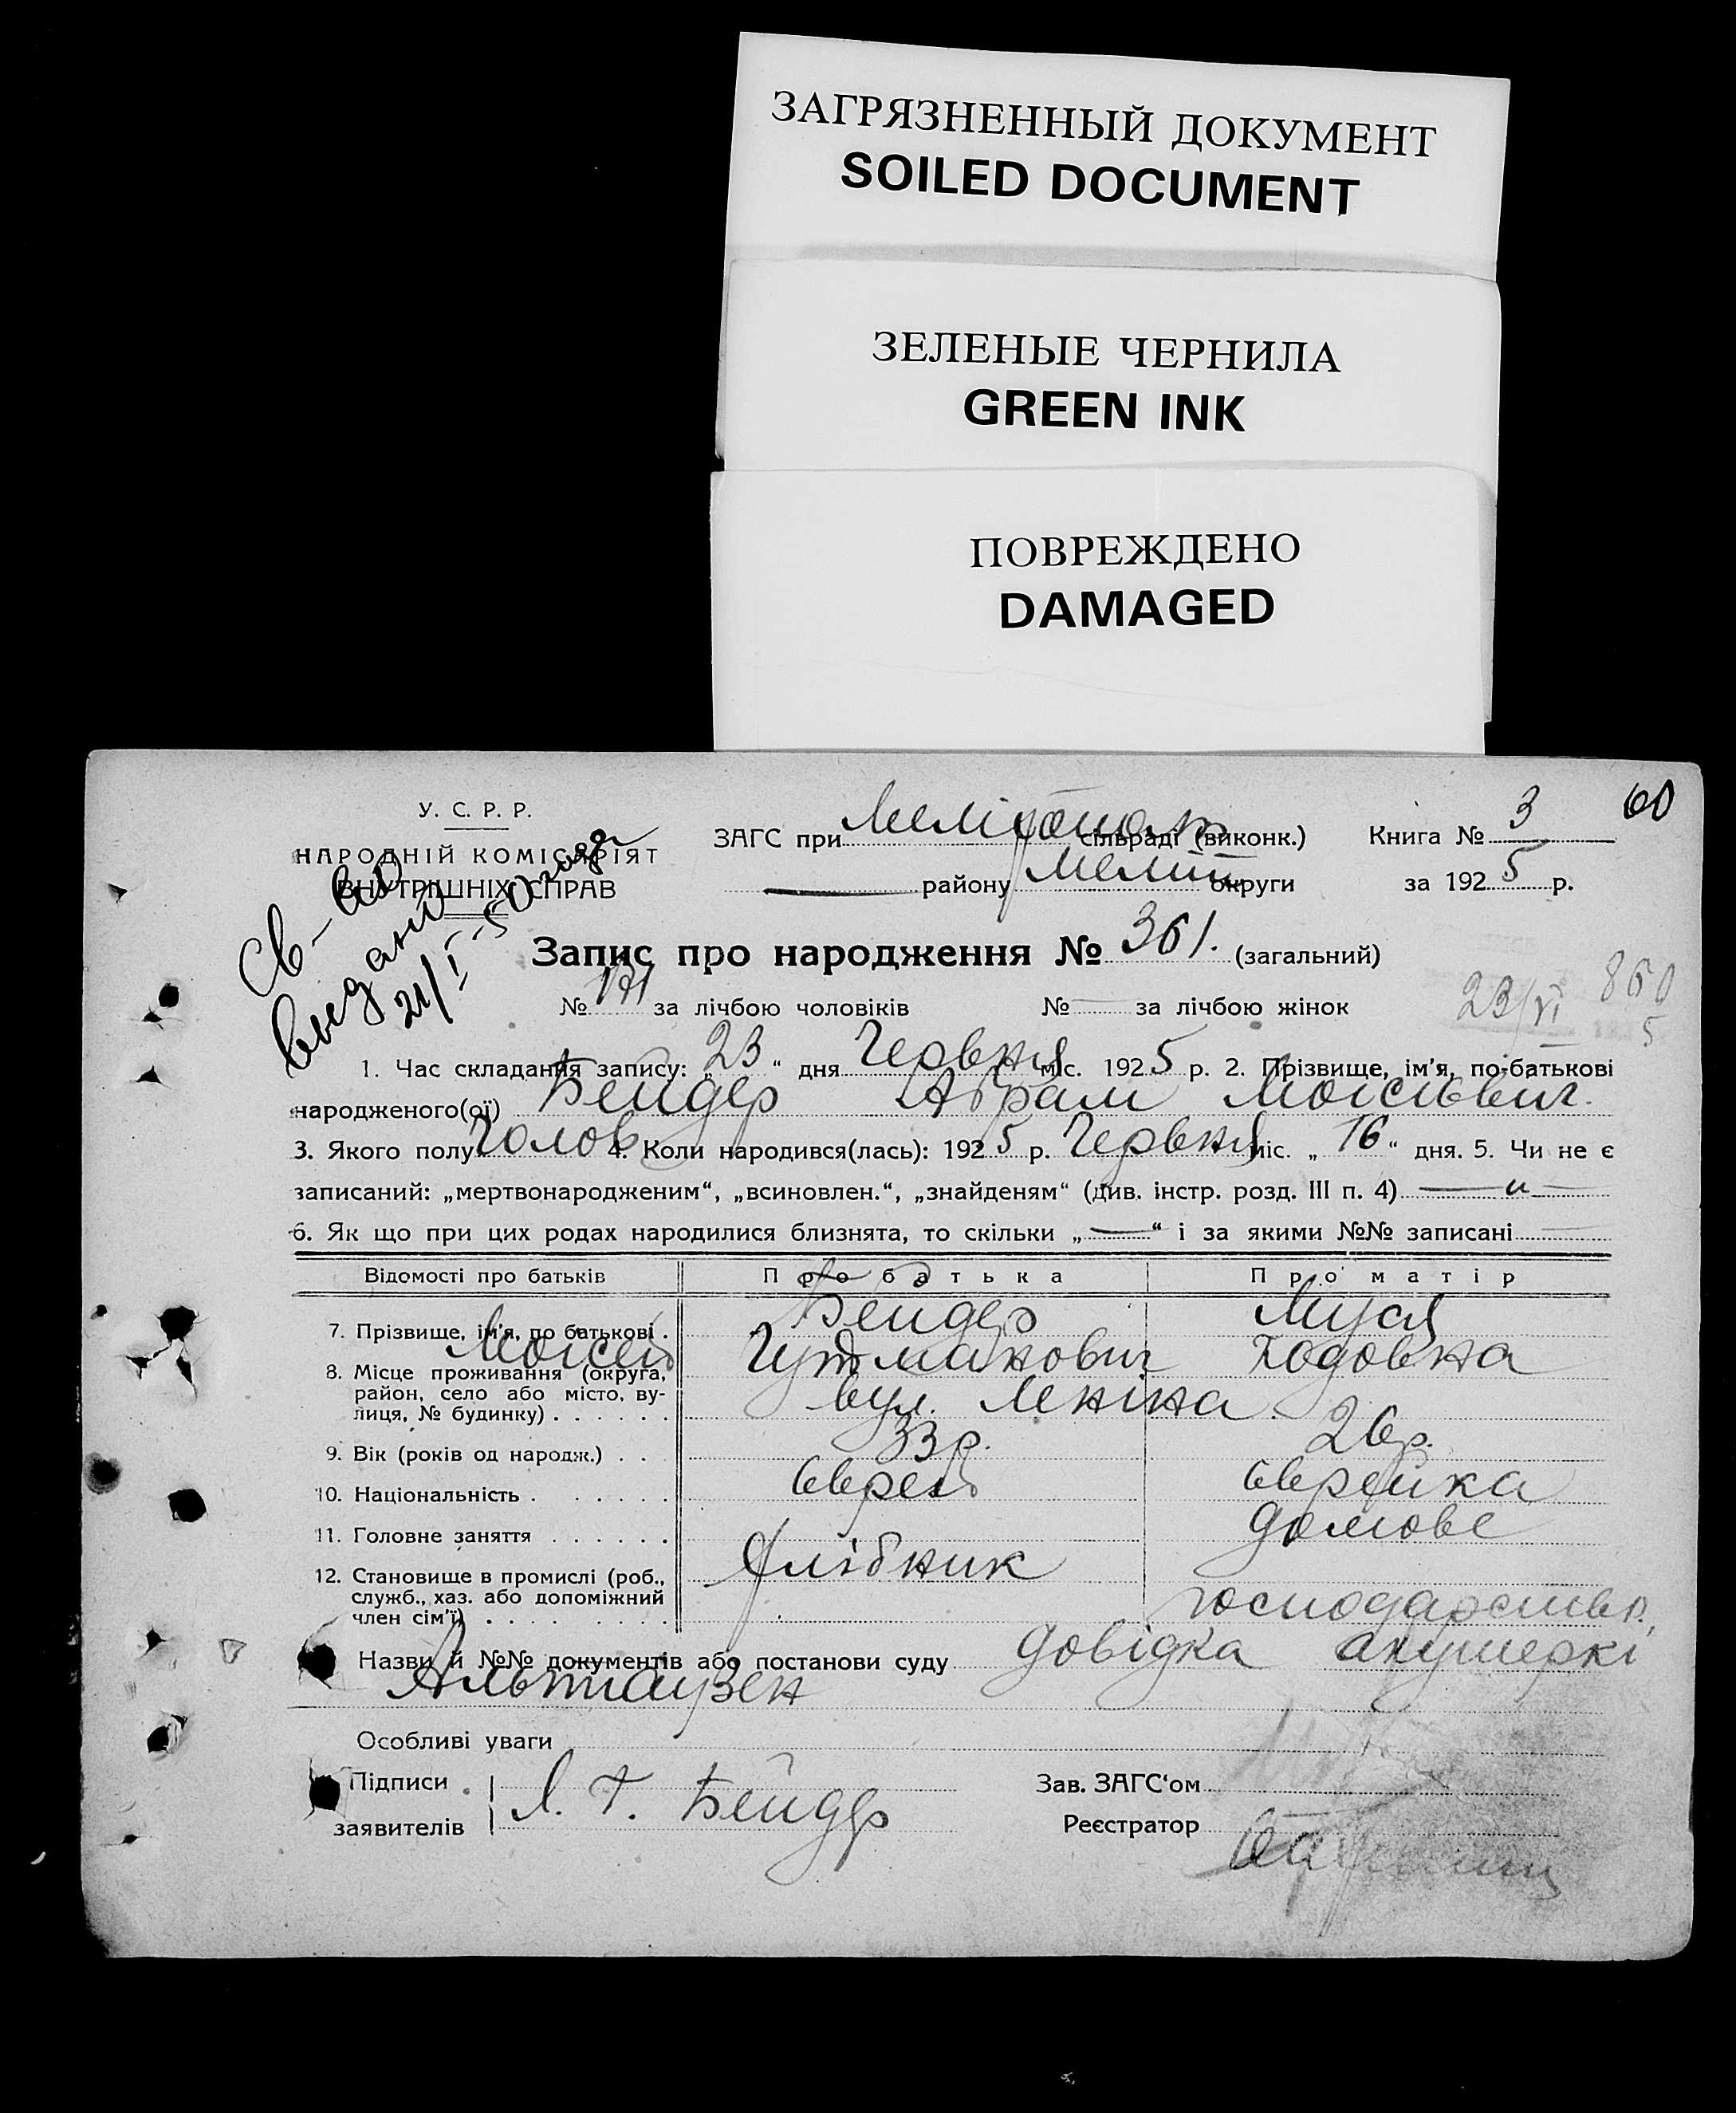 ЗАГРЯЗНЕННЫЙ ДОКУМЕНТ
SOILED DOCUMENT
ЗЕЛЕНЫЕ ЧЕРНИЛА
GREEN INK
ПОВРЕЖДЕНО
DAMAGED
У. С. Р. Р.
НАРОДНІЙ КОМІСАРІЯТ
ВНУТРІШНІХ СПРАВ
Св-во
выдано
21/I-50 года
ЗАГС при Мелітополь сільраді (виконк.) Книга № 3 60
— району Меліт округи за 1925 р.
Запис про народження № 361. (загальний)
№ 171 за лічбою чоловіків № — за лічбою жінок 23/VI 860 5
1. Час складання запису: „23“ дня Червня міс. 1925 р. 2. Прізвище, ім'я, по-батькові
народженого(ої) Бейдер Абрам Моісьевич.
3. Якого полу Чолов 4. Коли народився(лась): 1925 р. Червня міс. „16“ дня. 5. Чи не є
записаний: „мертвонародженим“, „всиновлен.“, „знайденям“ (див. інстр. розд. III п. 4) — „ —
6. Як що при цих родах народилися близнята, то скільки „—“ і за якими №№ записані —
Відомості про батьків Про батька Про матір
7. Прізвище, ім'я, по батькові . Бейдер Муся
Моісей Гутманович Годовна
8. Місце проживання (округа,
район, село або місто, вулиця, № будинку) . . . . . . вул. Леніна.
9. Вік (років од народж.) . . 33 р. 26 р.
10. Національність . . . . . . Єврей Єврейка
11. Головне заняття . . . . . . домове
12. Становище в промислі (роб., Хлібник
служб., хаз. або допоміжний господарство,
член сім'ї) . . . . . . . .
Назви й №№ документів або постанови суду довідка акушеркі
Альтгаузен
Особливі уваги
Підписи Зав. ЗАГС'ом
заявителів Г. Бейдер Реєстратор